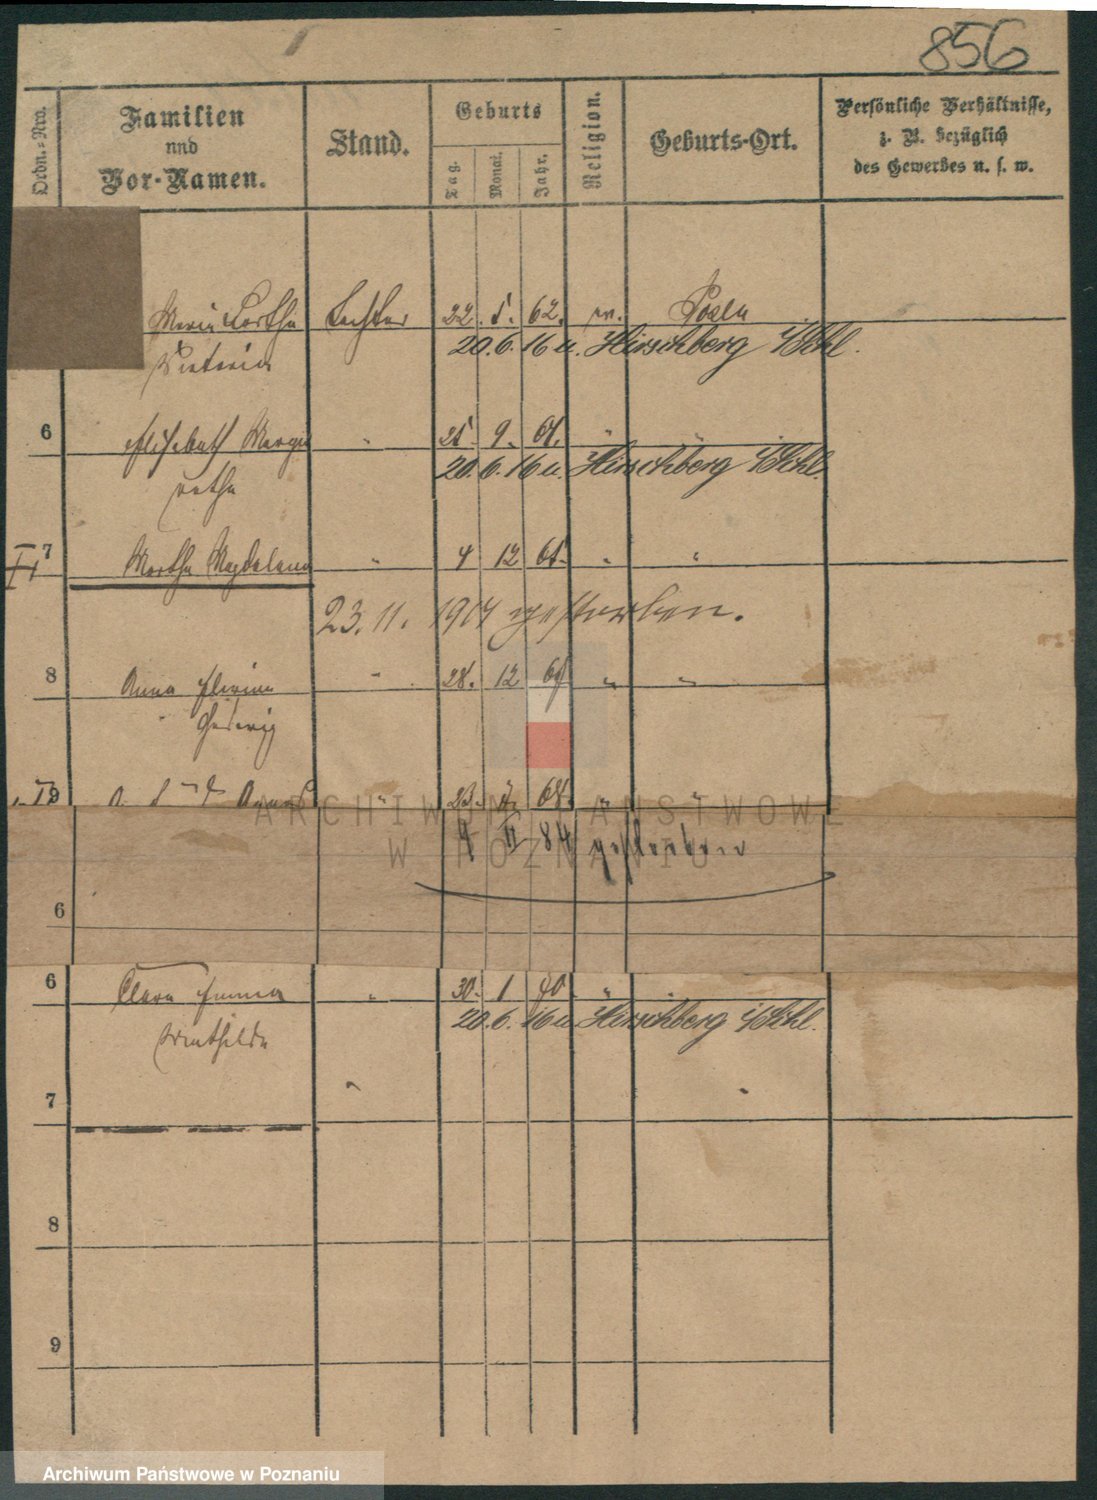 856
Ordn.=Nro.
Familien
und
Vor-Namen.
Stand.
Geburts
Tag.
Monat.
Jahr.
Religion.
Geburts-Ort.
Persönliche Verhältnisse,
z. B. bezüglich
des Gewerbes u. s. w.
Maria Bertha Tochter 22. 5. 62. ev. Posen
20.6.16 u. Hirschberg i/Schl.
Victoria
6 Elisabeth Marga " 25 9. " "
20.6.16 u. Hirschberg i/Schl.
retha
7 Martha Magdalena " 4 12 " "
23.11. 1914 gestorben.
8 Anna " 28. 12 " "
Hedwig
9 23. 68. " "
4 II 84 gestorben
6
6 Clara Emma " 30. 1 "
20.6.16 u. Hirschberg i/Schl.
Mathilde
7
8
9
ARCHIWUM PAŃSTWOWE
W POZNANIU
Archiwum Państwowe w Poznaniu